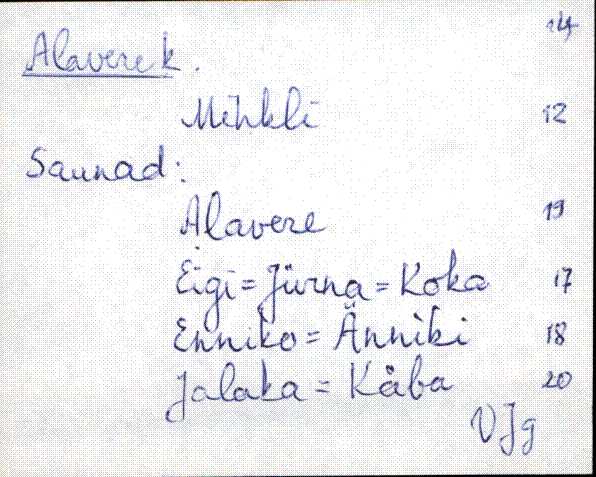 14
Alavere k.
Mihkli 12
Saunad:
Alavere 19
Eigi = Jürna = Koka 17
Enniko = Änniki 18
Jalaka = Käba 20
VJg